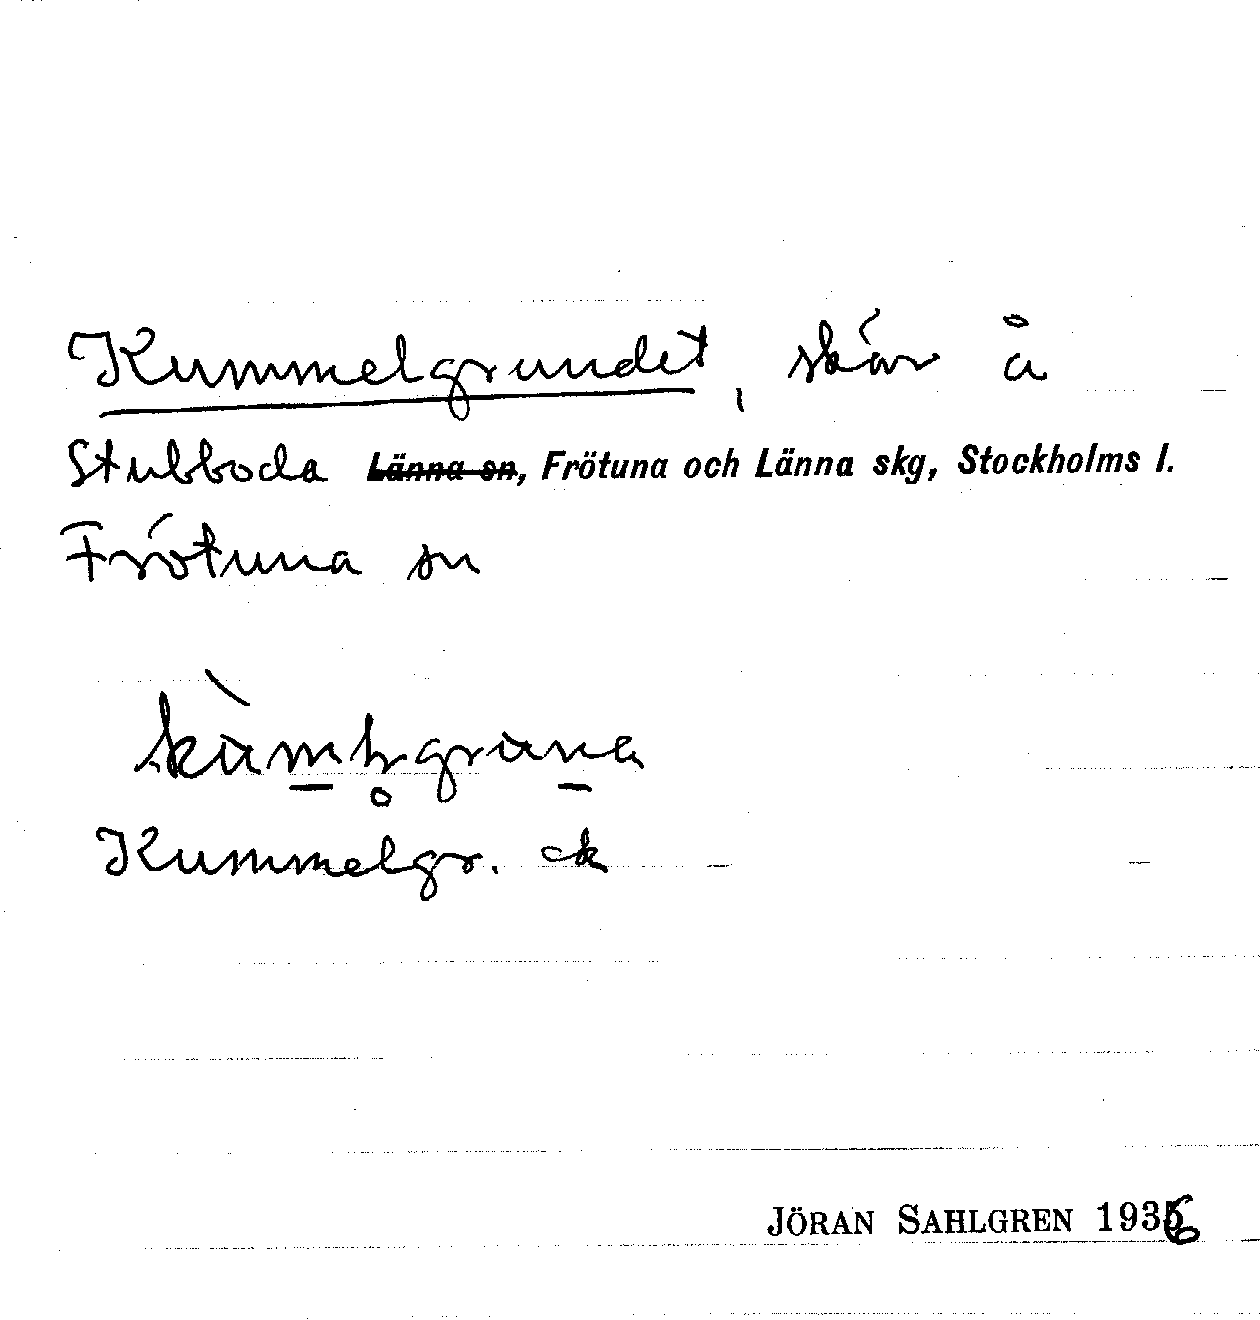 Kummelgrundet, skär å
Stubboda Länna sn, Frötuna och Länna skg, Stockholms l.
Frötuna sn
Kummelgr. ek
JÖRAN SAHLGREN 1936